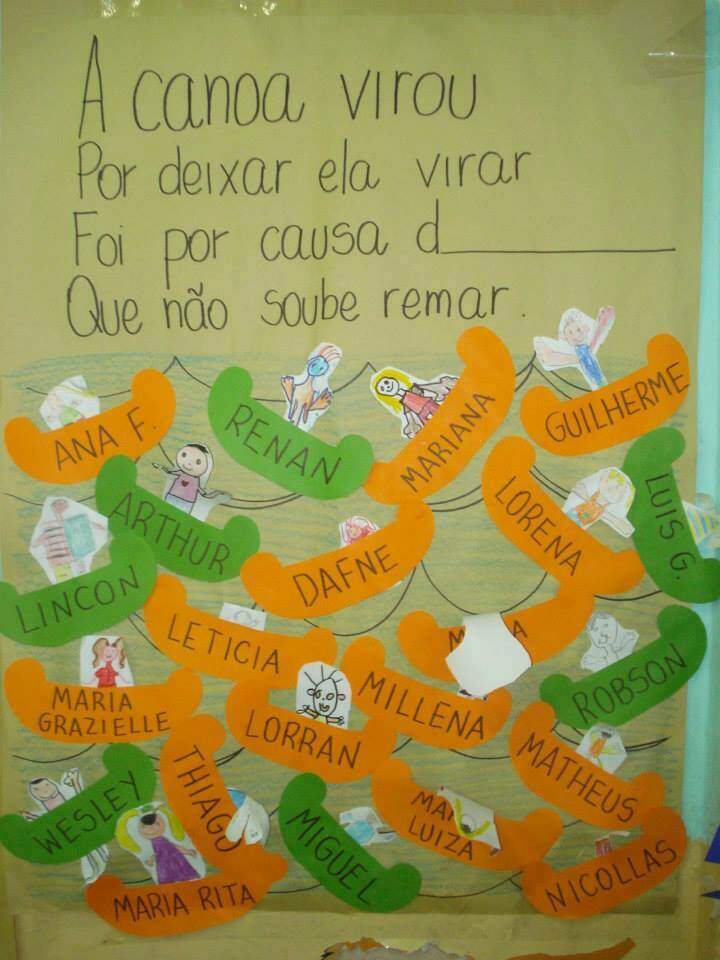 A canoa virou
Por deixar ela virar
Foi por causa d__________
Que não soube remar.
ANA F.
RENAN
MARIANA
GUILHERME
ARTHUR
LORENA
LUIS G.
LINCON
DAFNE
LETICIA
ROBSON
MARIA
GRAZIELLE
LORRAN
MILLENA
MATHEUS
WESLEY
THIAGO
MIGUEL
LUIZA
MARIA RITA
NICOLLAS